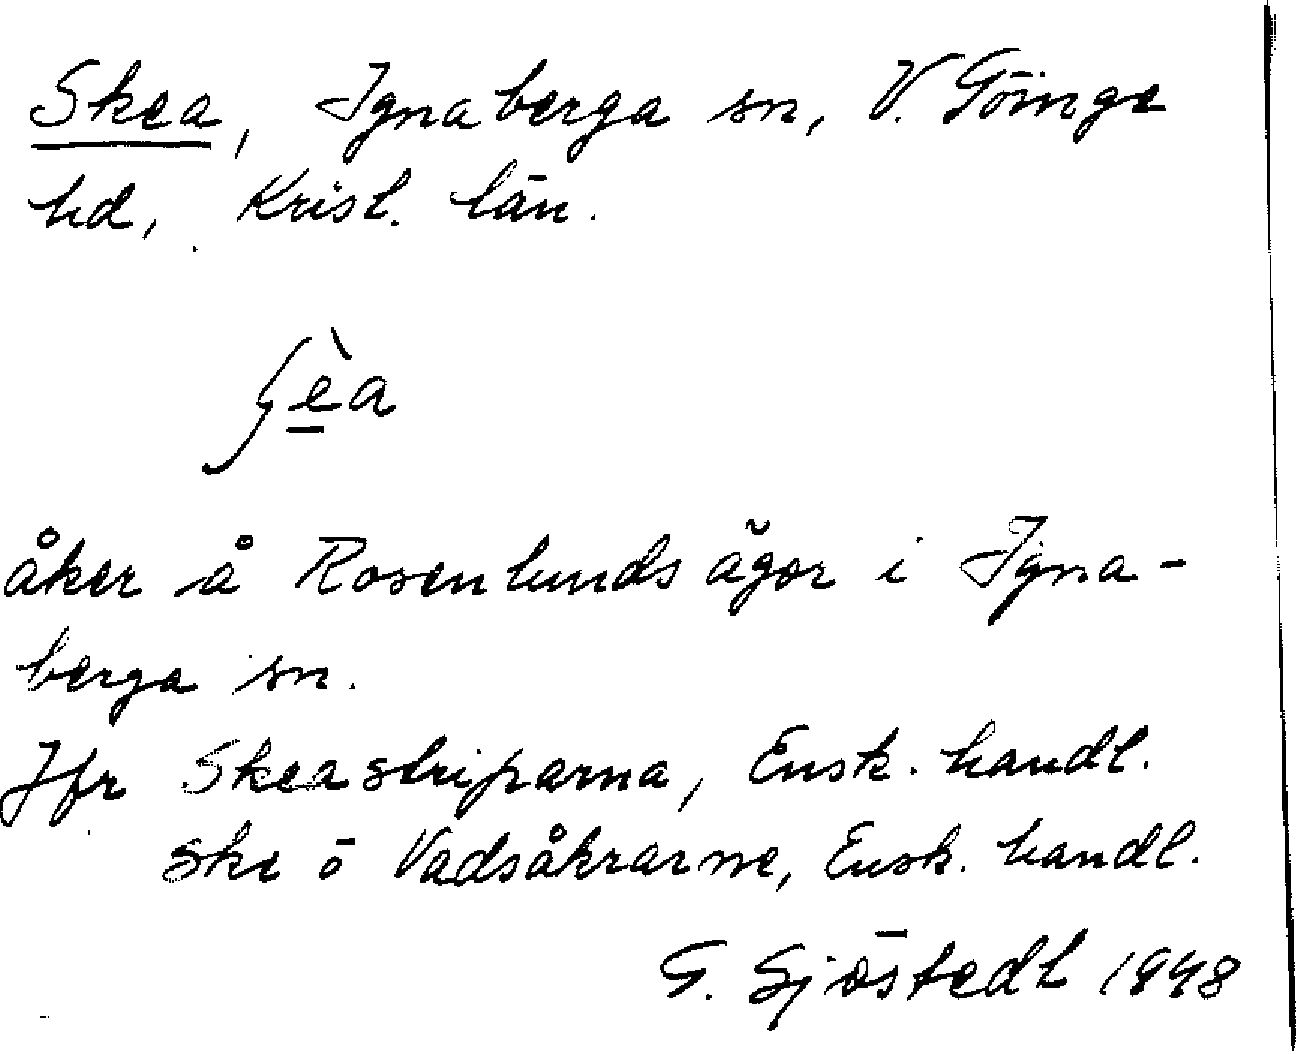 Skea, Ignaberga sn, V. Göinge
hd, Krist. län.
ʃèa
åker å Rosenlunds ägor i Igna-
berga sn.
Jfr Skeastriparna, Ensk. handl.
Ske ö Vadsåkrarne, Ensk. handl.
G. Sjöstedt 1948